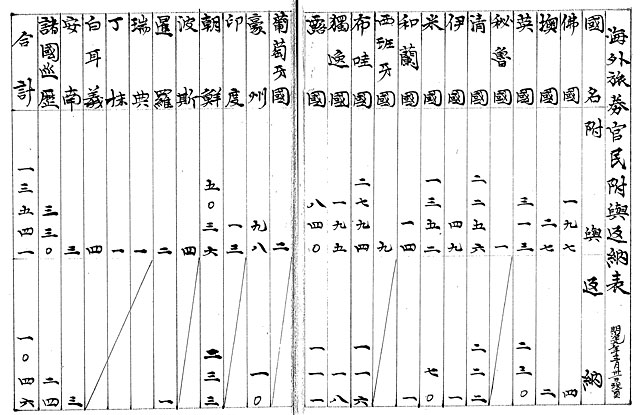 海外旅券官民附與返納表
國名 附與 返納
佛國 一九七 四
澳國 二七 二
英國 三一三 二三〇
秘魯國 一
清國 二二五六 二二二
伊國 四九
米國 一三五二 七〇
和蘭國 一四 一
西班牙國 九
布哇國 二七九四 一一六
獨逸國 一九五 一八
露國 八四〇 一一一
葡萄牙國 二
豪州 九八 一〇
印度 一三
朝鮮 五〇三六 二三三
波斯 四
暹羅 二 一
瑞典 一
丁抹 一
白耳義 四
安南 三 三
諸國巡歴 三三〇 二四
合計 一三五四一 一〇四六